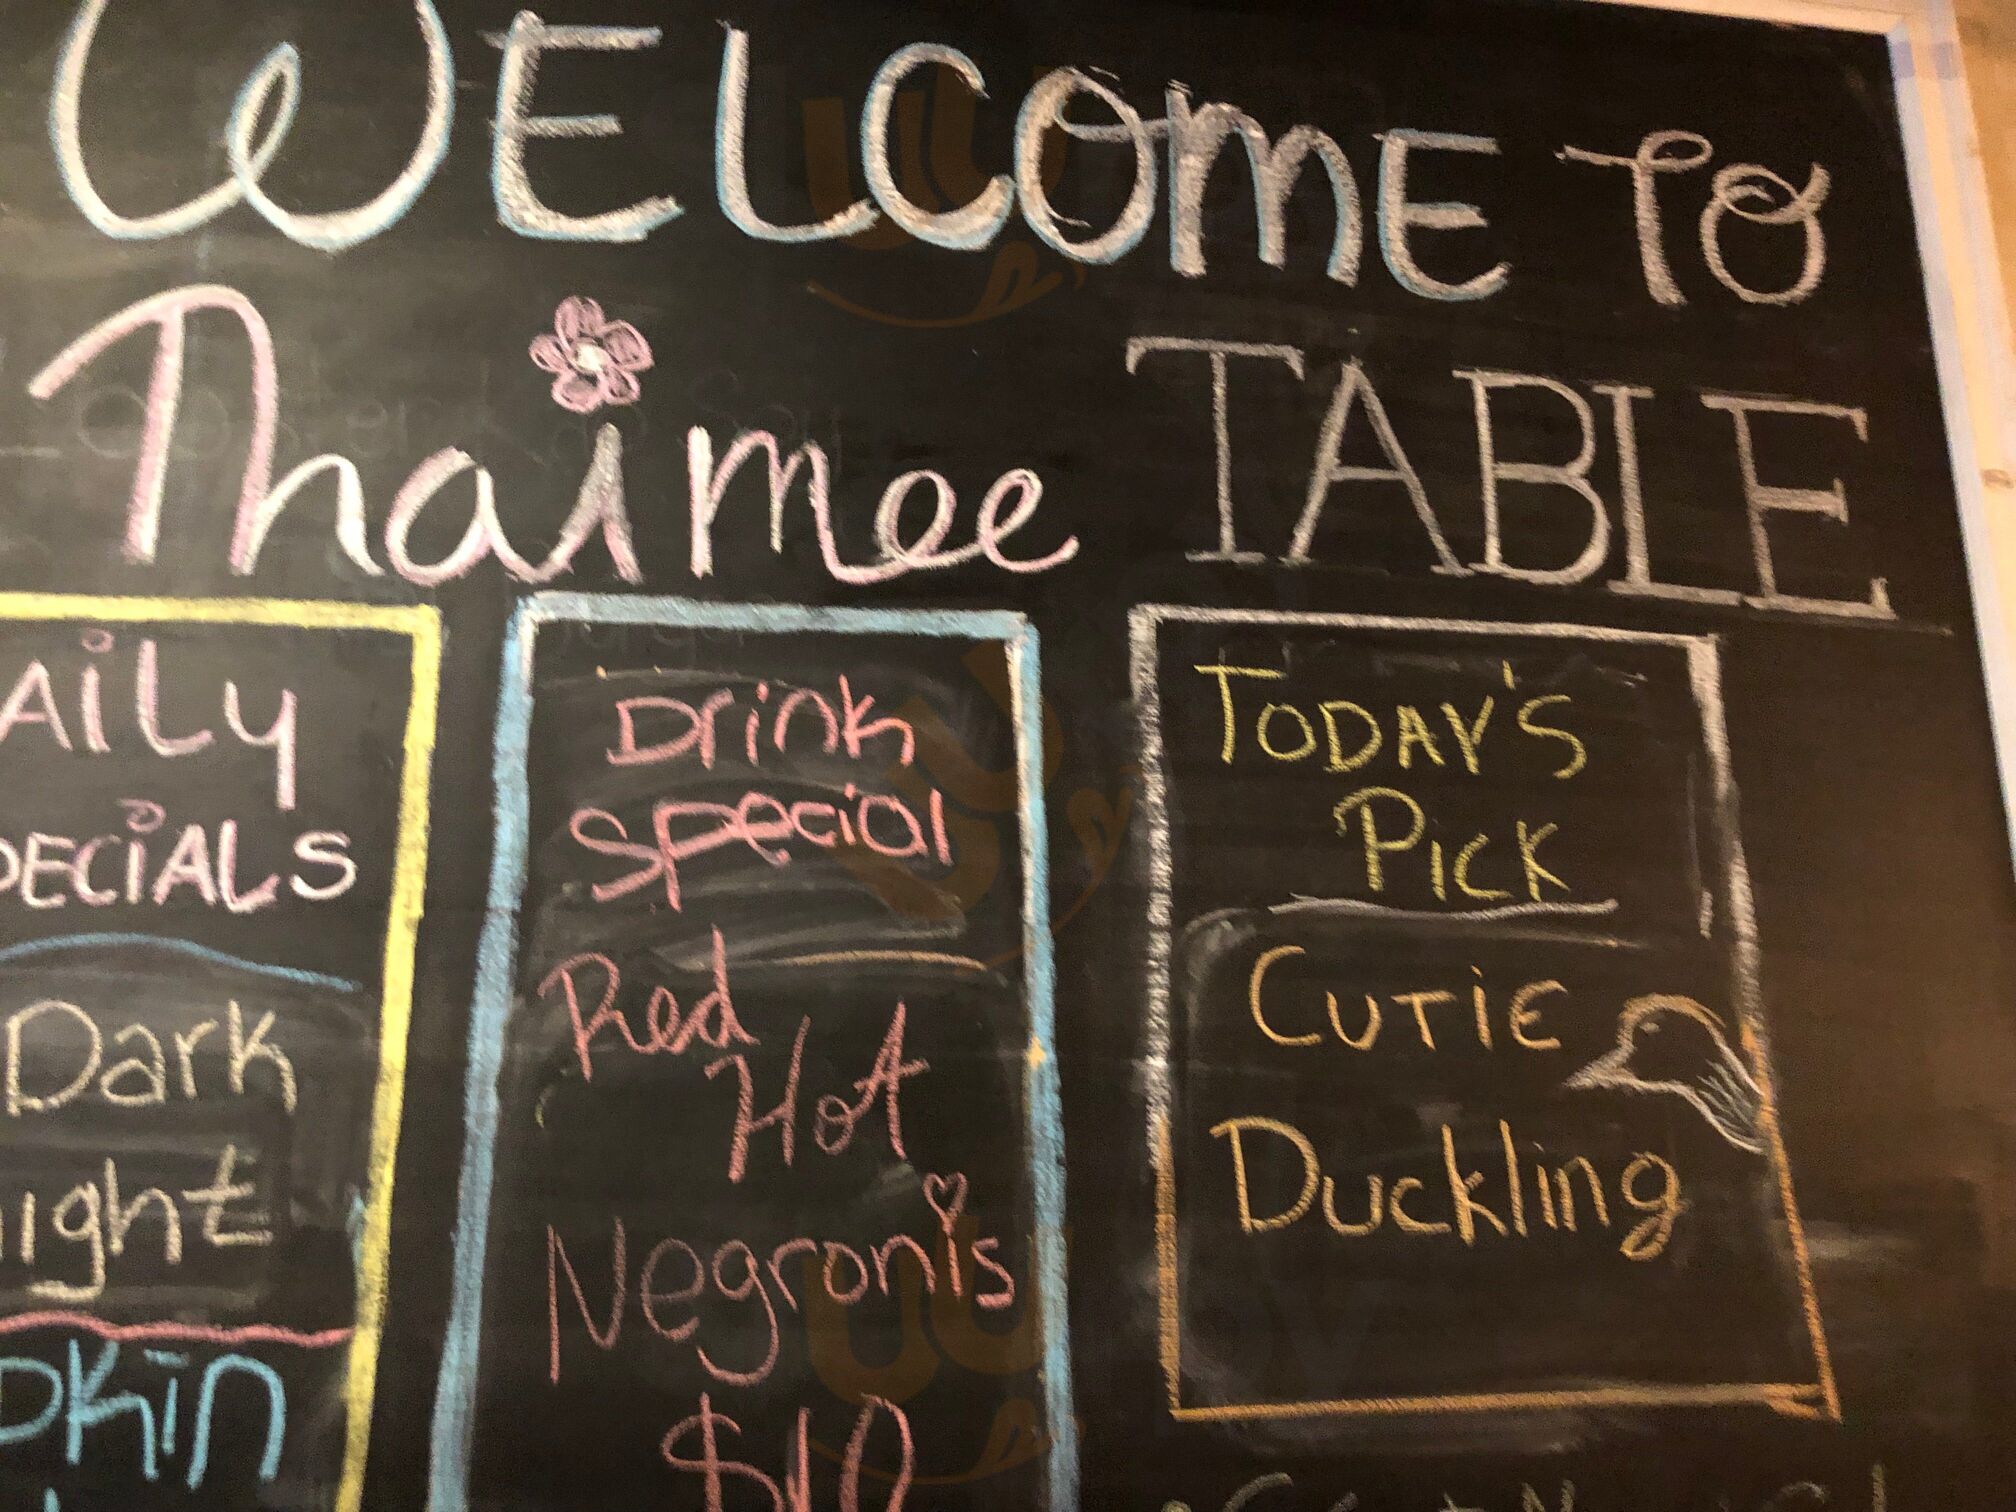 WELCOME TO
Thaimee TABLE
AiLy
PECiALS
Dark
night
pkin
Drink
Special
Red
Hot
Negronis
$10
TODAY'S
PICK
CUTiE
Duckling